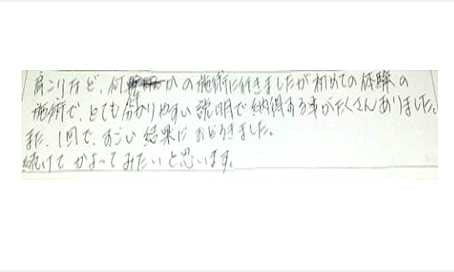 肩こりなど、何かの施術に行きましたが初めての体験の
施術で、とても分かりやすい説明で納得する事がたくさんありました。
また、1回で、すごい結果におどろきました。
続けてかよってみたいと思います。